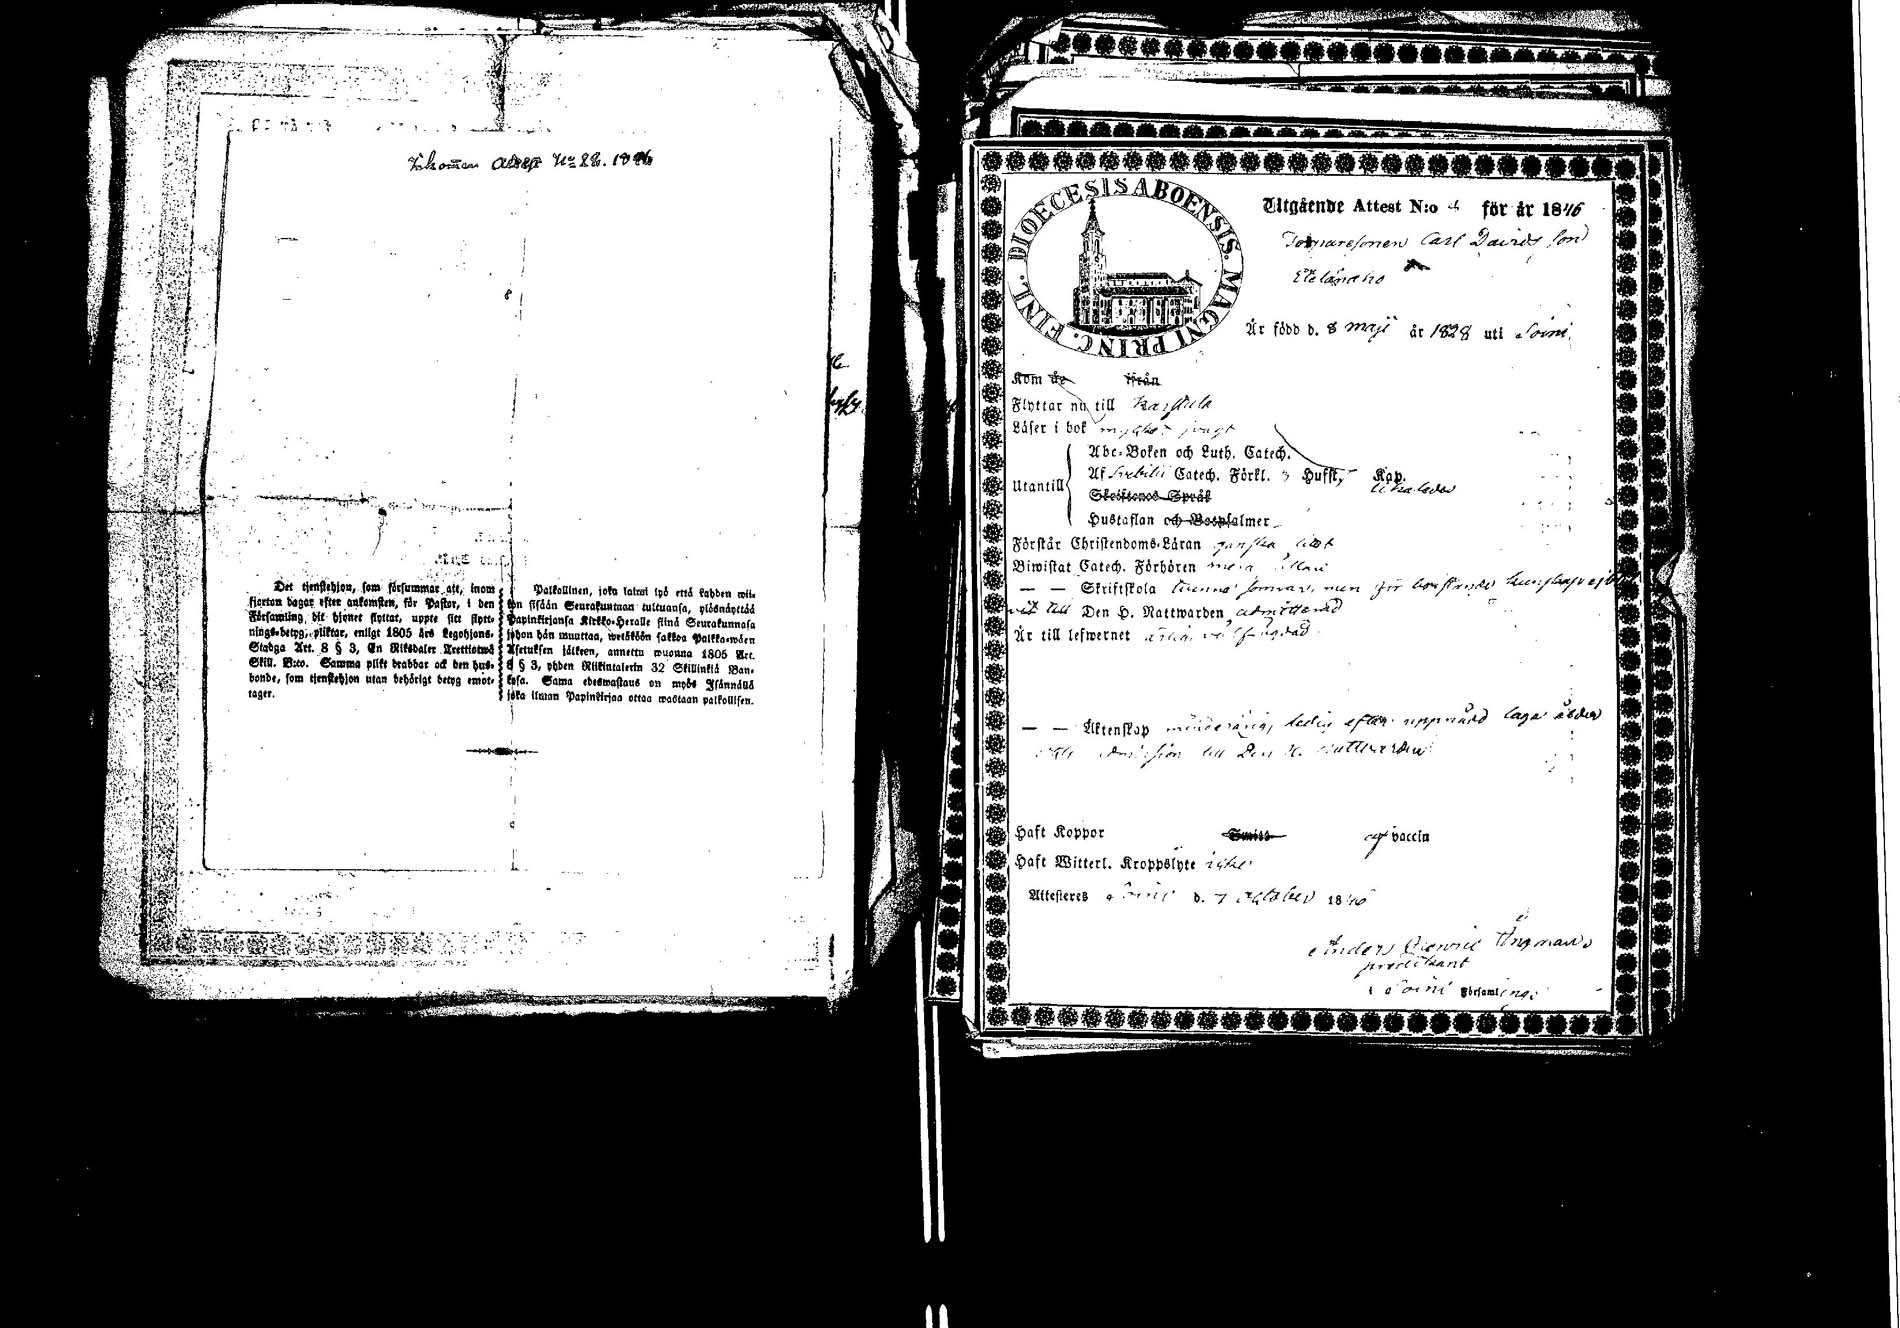 Inkommen Attest No 22. 1846
Det tjenstehjon, som försummar att, inom
fjorton dagar efter ankomsten, för Pastor, i den
Församling dit hjonet flyttat, uppte sitt flytt-
nings-betyg, pliktar, enligt 1805 års Legohjons-
Stadga Art. 8 § 3, En Riksdaler Trettiotwå
Skill. B:co. Samma plikt drabbar ock den hus-
bonde, som tjenstehjon utan behörigt betyg emot-
tager.
Palkollinen, joka laimi lyö että kahden wii-
kon sisään Seurakuntaan tultuansa, ylösnäyttää
Papinkirjansa Kirkko-Herralle siinä Seurakunnasa
johon hän muuttaa, wetäköön sakkoa Palkka-wäen
Asetuksen jälkeen, annettu wuonna 1805 Art.
8 § 3, yhden Riikintalerin 32 Skillinkiä Ban-
kosa. Sama edeswastaus on myös Isännällä
joka ilman Papinkirjaa ottaa wastaan palkollisen.
DIOECESIS ABOENSIS. MAGNI PRINC. FINL.
Utgående Attest N:o 4 för år 1846
Carl Davids son
Eteläaho
Är född d. 8 maji år 1828 uti Soini
Kom år ifrån
Flyttar nu till Karstula
Läser i bok mycket swagt
Abc-Boken och Luth. Catech.
Utantill Af Svebilii Catech. Förkl. 3 Hufst. Kap.
Skriftenes Språk
Hustaflan och Botpsalmer
Förstår Christendoms-Läran ganska litet
Biwistat Catech. Förhören
— — Skriftskola tvenne somrar, men för bristande kunskap ej
till Den H. Nattwarden admitterad
Är till lefwernet
— — Äktenskap minderårig, ledig efter uppnådd laga ålder
admission till Den H. Nattvarden
Haft Koppor Smitt af vaccin
Haft Witterl. Kroppslyte icke
Attesteras Soini d. 7 October 1846
Anders Henric Ångman
predikant
i Soini Församlings